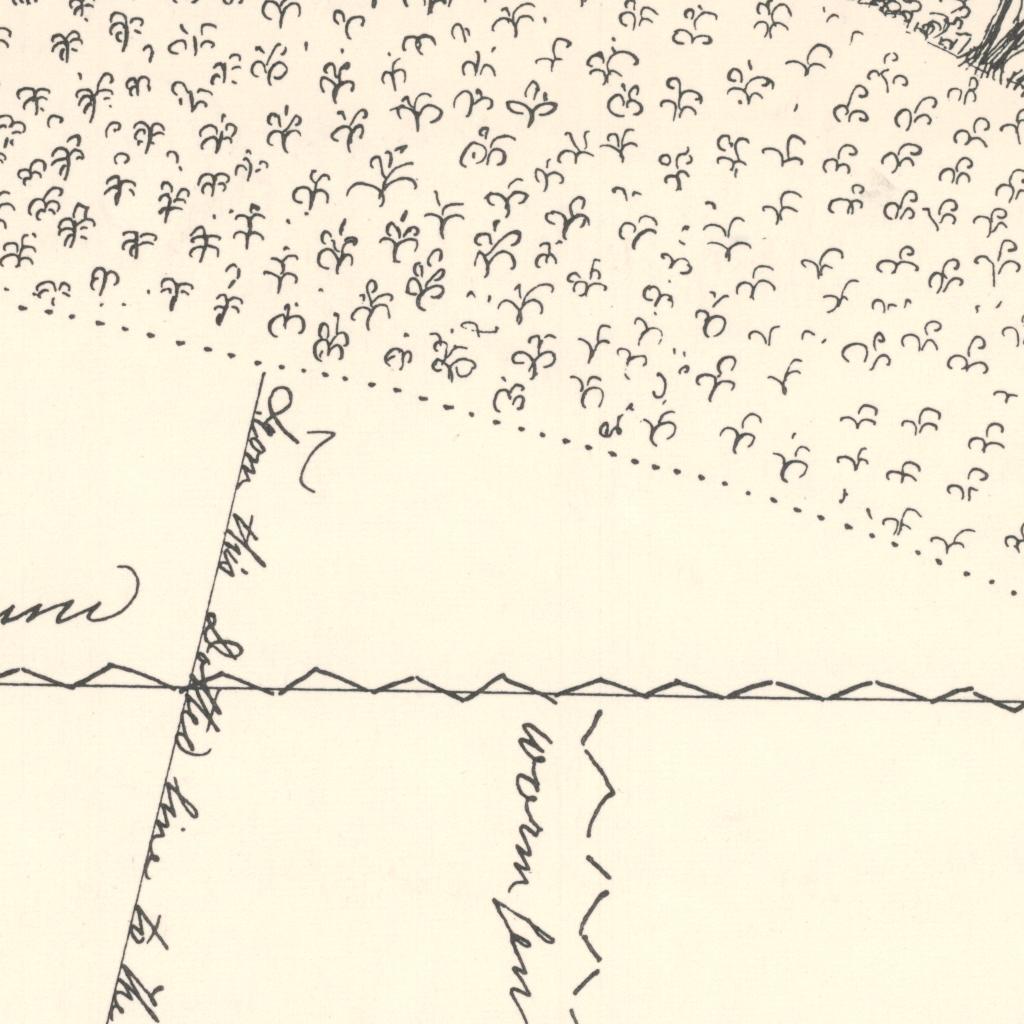 From this dotted line to the
Worm fen